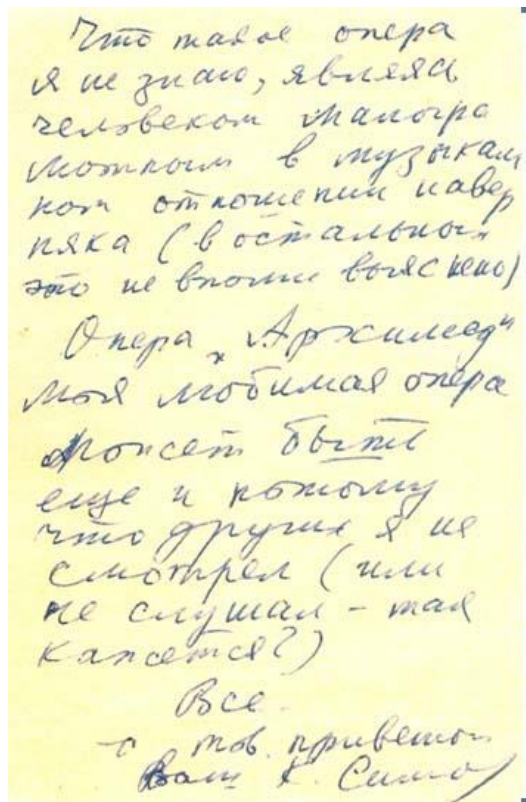 Что такое опера
я не знаю, являясь
человеком малогра
мотным в музыкаль
ном отношении навер
няка (в остальном
это не вполне выяснено)
Опера „Архимед"
моя любимая опера
может быть
еще и потому
что других я не
смотрел (или
не слушал - так
кажется?)
Все.
с тов. приветом
Ваш К. Симо